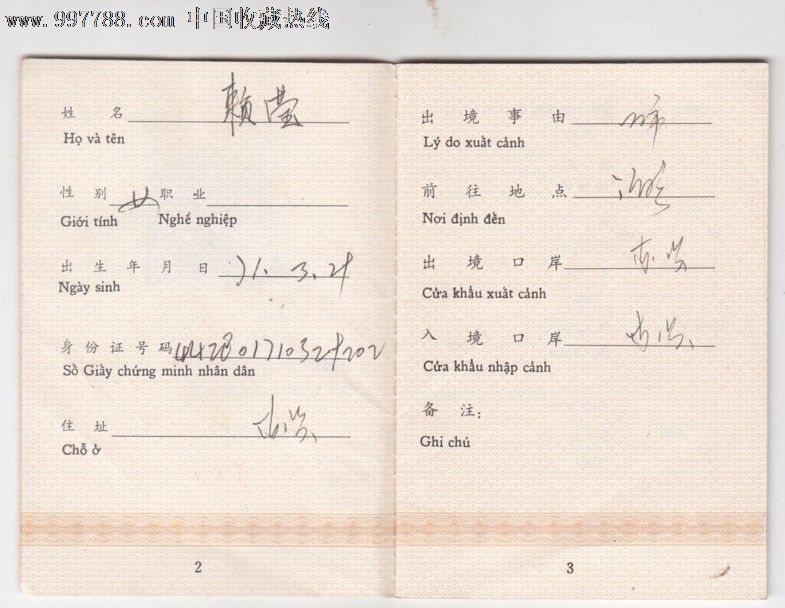 www.997788.com 中国收藏热线
姓 名 赖莹
Họ và tên
性 别 女 职 业
Giới tính Nghề nghiệp
出 生 年 月 日 71.3.29
Ngày sinh
身 份 证 号 码
Số Giấy chứng minh nhân dân
住 址
Chỗ ở
2
出 境 事 由
Lý do xuất cảnh
前 往 地 点
Nơi định đến
出 境 口 岸 东兴
Cửa khẩu xuất cảnh
入 境 口 岸 东兴
Cửa khẩu nhập cảnh
备 注：
Ghi chú
3